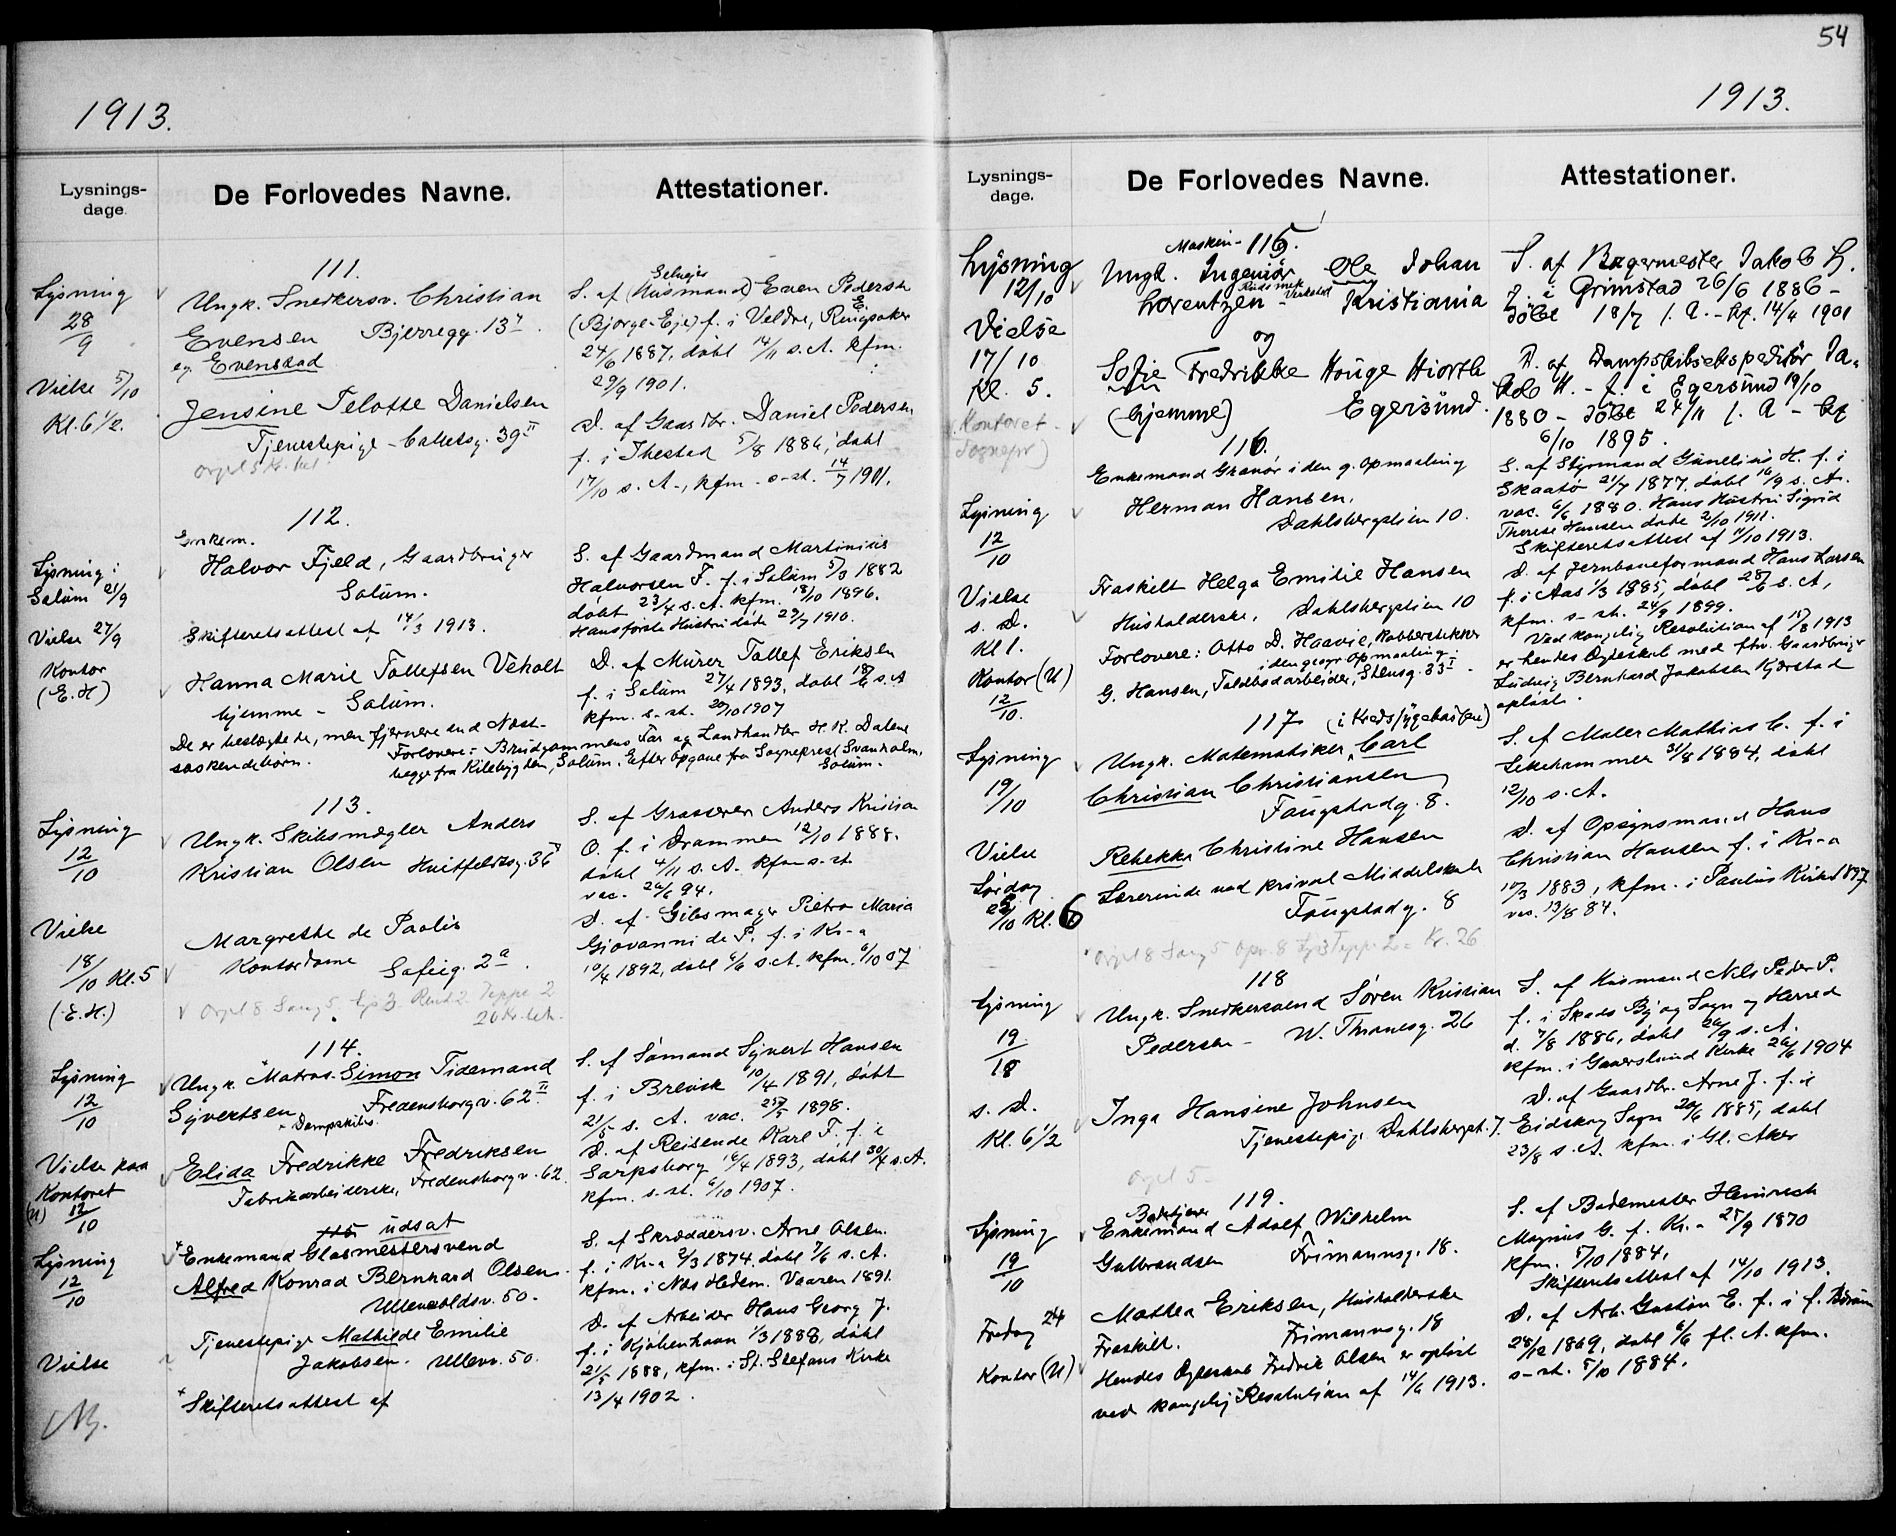 54
1913.
1913.
Lysnings-
dage.
De Forlovedes Navne.
Attestationer.
111.
Lysning
28/9
Vielse 5/10
Kl. 6 1/2.
Ungk. Snedkersv. Christian
Evensen Bjerregg. 13
eg. Evenstad
Jensine Danielsen
Tjenestepige
Selveier
S. af (Husmand) Even Pedersen
(Bjorge-Eje) f. i Veldre, Ringsaker
24/6 1887, døbt 14/11 s. A. kfm.
29/9 1901.
D. af Gaardbr. Daniel Pedersen
f. i 5/8 1886, døbt
17/10 s. A., kfm. s. st. 14/7 1901.
112.
Lysning i
Solum 21/9
Vielse 27/9
Kontor
(E. H)
Enkem.
Halvor Fjeld, Gaardbruger
Solum.
Skifteretsattest af 14/3 1913.
Hanna Marie Tollefsen Veholt
hjemme - Solum.
De er beslægtede, men fjernere end Næst-
søskendebørn.
Forlovere: Brudgommens Far og Landhandler H. K. Dalene
begge fra Kilebygden, Solum. Efter Opgave fra Sogneprest Svanholm,
Solum.
S. af Gaardmand Martinius
Halvorsen F. f. i Solum 5/3 1882
døbt 23/4 s. A. kfm. 18/10 1896.
Hans første Hustru døde 29/7 1910.
D. af Murer Tollef Eriksen
f. i Solum 27/4 1893, døbt 18/6 s. A
kfm. s. st. 20/10 1907
113.
Lysning
12/10
Vielse
18/10 Kl. 5
(E. H.)
Ungk. Skibsmægler Anders
Kristian Olsen Huitfeldtsg. 36
Margrethe de Paolis
Kontordame Sofieg. 2a.
Orgel 8 Sang 5 Lys 3 Tæppe 2
S. af Grosserer Anders Kristian
O. f. i Drammen 12/10 1888.
døbt 4/11 s. A. kfm. s. st.
vac. 26/6 94.
D. af Gibsmager Pietro Maria
Giovanni de P. f. i Kr.a
10/4 1892, døbt 6/6 s. A. kfm. 6/10 07
114.
Lysning
12/10
Vielse paa
Kontoret
(U) 12/10
Ungk. Matros Simon Tidemand
Syvertsen Fredensborgv. 62 II
Dampskibs
Elida Fredrikke Fredriksen
Fabrikarbeiderske, Fredensborgv. 62
S. af Sømand Syvert Hansen
f. i Brevik 10/4 1891, døbt
21/5 s. A. vac. 25/5 1898.
D. af Reisende Karl F. f. i
Sarpsborg 16/4 1893, døbt 30/4 s. A.
kfm. s. st. 6/10 1907.
115 udsat
Lysning
12/10
Vielse
*Enkemand Glasmestersvend
Alfred Konrad Bernhard Olsen
Ullevoldsv. 50.
Tjenestepige Mathilde Emilie
Jakobsen. Ullevv. 50.
*Skifteretsattest af
S. af Skræddersv. Arne Olsen
f. i Kr.a 2/3 1874, døbt 7/6 s. A.
kfm. i Nes Hedem. Vaaren 1891.
D. af Arbeider Hans Georg J.
f. i Kjøbenhavn 1/3 1888, døbt
21/5 1888, kfm. i St. Stefans Kirke
13/4 1902.
Lysnings-
dage.
De Forlovedes Navne.
Attestationer.
115.
Lysning
12/10
Vielse
17/10
Kl. 5.
(Kontoret
Sognepr)
Maskin-
Ungk. Ingeniør Ole Johan
Lorentzen - Kristiania
og
Sofie Fredrikke Houge Hiorth
(hjemme) Egersund.
S. af Bagermester Jakob L.
f. i Grimstad 26/6 1886 -
døbt 18/7 s. A. - kf. 14/4 1901
D. af Dampskibsekspeditør Ja-
kob H. - f. i Egersund 19/10
1880 - døbt 24/11 s. A - kf
6/10 1895.
116.
Lysning
12/10
Vielse
s. D.
Kl 1.
Kontor (U)
12/10.
Enkemand Gravør i den g. Opmaaling
Herman Hansen,
Dahlsbergstien 10.
Fraskilt Helga Emilie Hansen
Husholderske, Dahlsbergstien 10
Forlovere: Otto D. Haavie, Kobberstikker
i den geogr. Opmaaling:
G. Hansen, Toldbodarbeider, Stensg. 33 I
S. af Styrmand Gunelius H. f. i
Skaatø 21/7 1877, døbt 16/9 s. A.
vac. 6/6 1880. Hans Hustru Sigrid
Therese Hansen døde 2/10 1911.
Skifteretsattest af 11/10 1913.
D. af Jernbaneformand Hans Larsen
f. i Aas 1/3 1885, døbt 28/6 s. A,
kfm. s. st. 24/9 1899.
Ved kongelig Resolution af 15/8 1913
er hendes Egteskab med fhv. Gaardbruger
Ludvig Bernhard Jakobsen Kjørstad
opløst.
117
Lysning
19/10
Vielse
Lørdag
25/10 Kl. 6
Ungk. Matematiker, Carl
Christian Christiansen
Fougstadg. 8.
Rebekka Christine Hansen
Lærerinde ved privat Middelskole
Fougstadg. 8
Orgel 8 Sang 5 Opv. 8 Lys 3 Tæppe 2 = Kr. 26
S. af Maler Mathias C. f. i
Lillehammer 31/8 1884, døbt
12/10 s. A.
D. af Opsynsmand Hans
Christian Hansen f. i Kr.a
10/3 1883, kfm. i Paulus Kirke 1897
vac. 13/8 84.
118
Lysning
19/10
s. D.
Kl. 6 1/2
Ungk. Snedkersvend Søren Kristian
Pedersen - W. Thranesg. 26
Inga Hansine Johnsen
Tjenestepige Dahlsbergst. 7.
Orgel 5
S. af Husmand Nils Peder P.
f. i Skads By og Sogn og Herred
d. 7/8 1886, døbt 26/9 s. A.
kfm. i Gaverslund Kirke 26/6 1904
D. af Gaardbr. Arne J. f. i
Eidskog Sogn 20/6 1885, døbt
23/8 s. A. kfm. i Gl. Aker
119.
Lysning
19/10
Fredag 24
Kontor (U)
Enkemand Adolf Wilhelm
Gulbrandsen Frimannsg. 18.
Mathea Eriksen, Husholderske
Fraskilt. Frimannsg. 18
Hendes Egteskab Fredrik Olsen er opløst
ved kongelig Resolution af 14/6 1913.
S. af Bademester Heinrich
Magnus G. f. Kr.a 25/9 1870
kfm. 5/10 1884.
Skifteretsattest af 14/10 1913.
D. af Arb. Gustav E. f. i
28/12 1869, døbt 6/6 fl. A. kfm.
s. st. 5/10 1884.